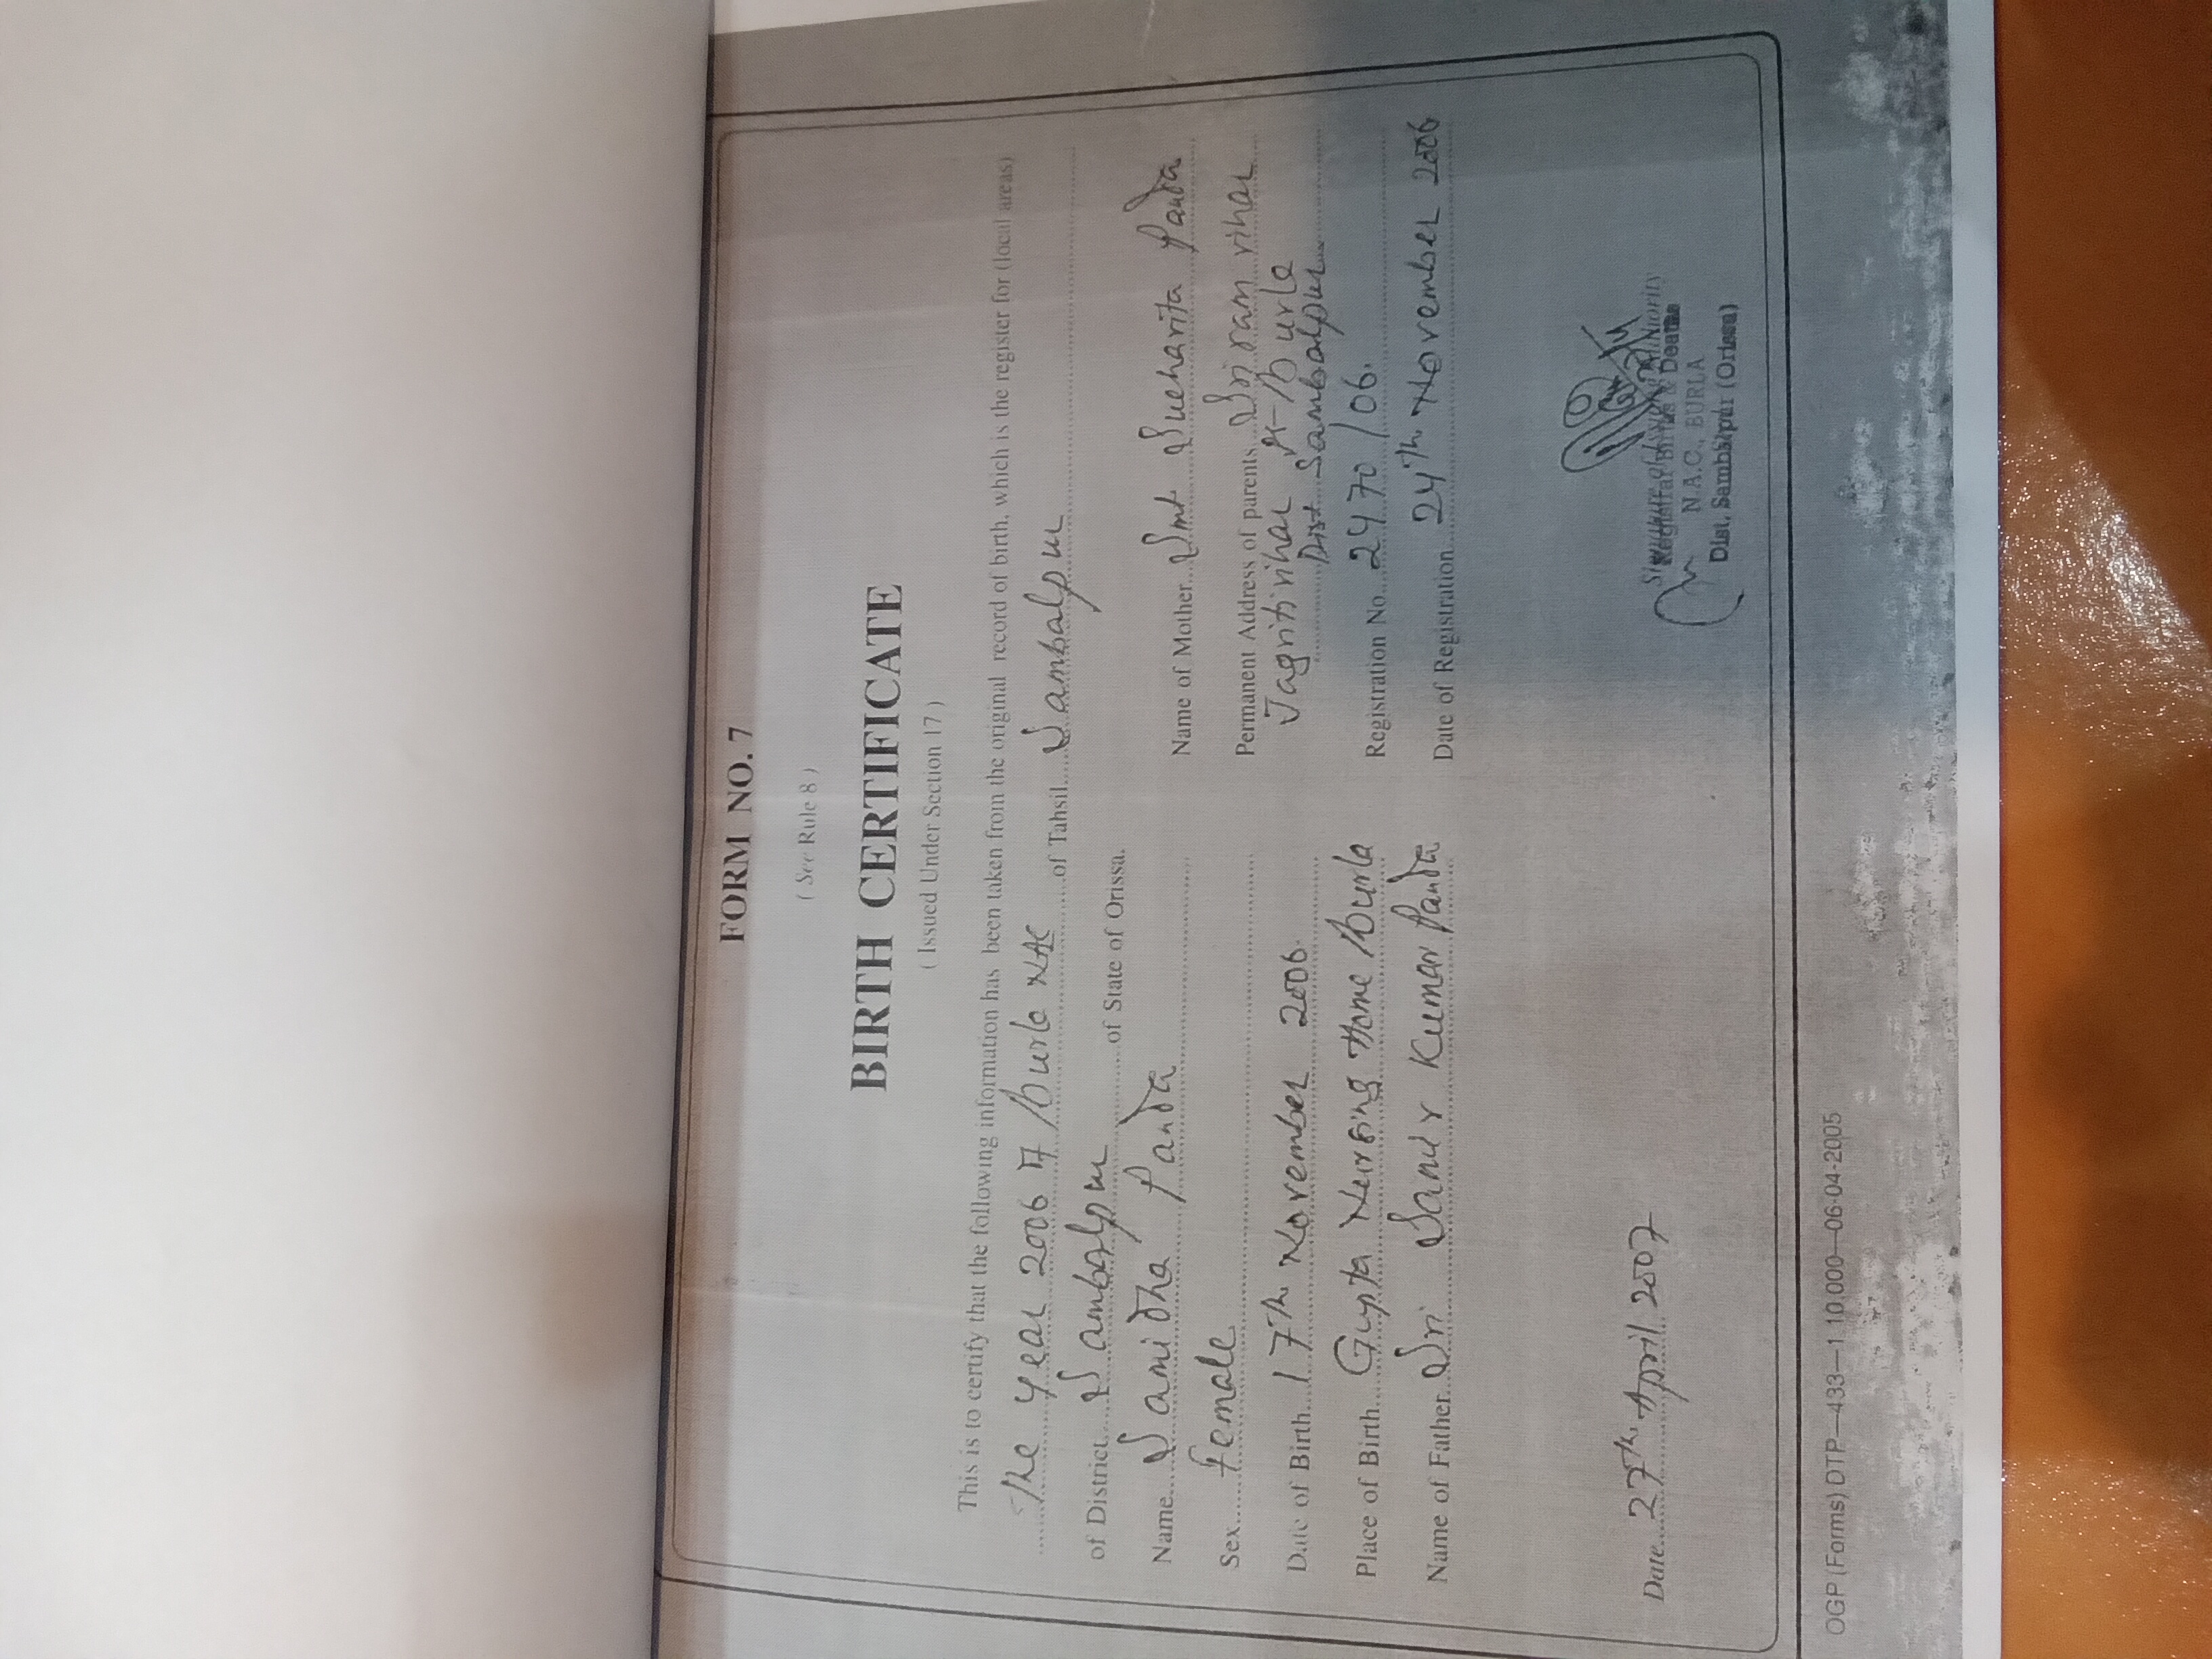 FORM NO. 7
( See Rule 8 )
BIRTH CERTIFICATE
( Issued Under Section 17 )
This is to certify that the following information has been taken from the original record of birth, which is the register for (local areas)
The year 2006 of Burla NAC of Tahsil Sambalpur
of District Sambalpur of State of Orissa.
Name Samidha Panda
Name of Mother Smt Sucharita Panda
Sex Female
Permanent Address of parents Sriram vihar
Jagritivihar Burla
Dist Sambalpur
Date of Birth 17th November 2006.
Place of Birth Gupta Nursing Home Burla
Registration No. 2470/06.
Name of Father Sri Samir Kumar Panda
Date of Registration 24th November 2006
Date 27th April 2007
Signature of Issuing Authority
Registrar Births & Deaths
N.A.C., BURLA
Dist, Sambalpur (Orissa)
OGP (Forms) DTP—433—1 10,000—06-04-2005